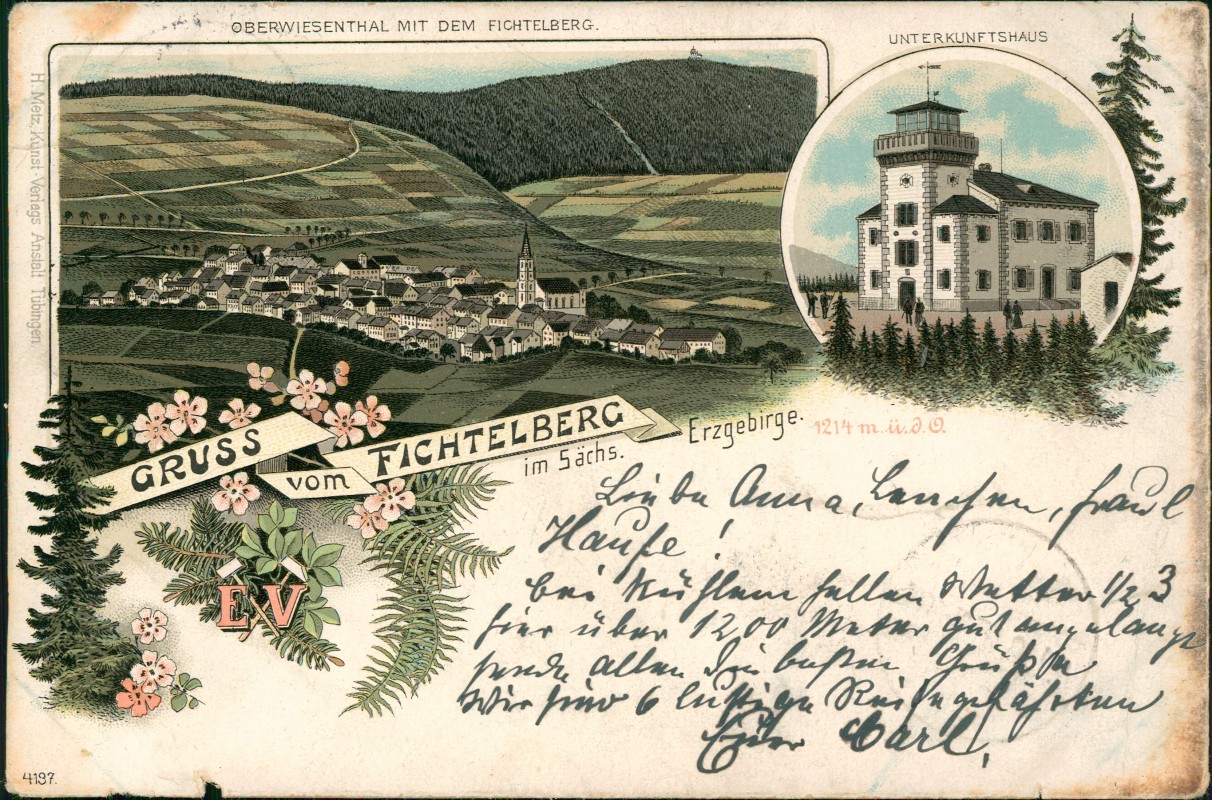 OBERWIESENTHAL MIT DEM FICHTELBERG.
UNTERKUNFTSHAUS
H. Metz, Kunst-Verlags Anstalt Tübingen.
GRUSS
vom
FICHTELBERG
im Sächs.
Erzgebirge.
1214 m. ü. d. O.
EV
Liebe Anna, Lenchen, Fräul
Haufe!
bei kühlem hellen Wetter 1/2 3
hier über 1200 Meter gut angelangt
sende allen die besten Grüße
Wir sind 6 lustige Reisegefährten
Euer Carl.
4197.